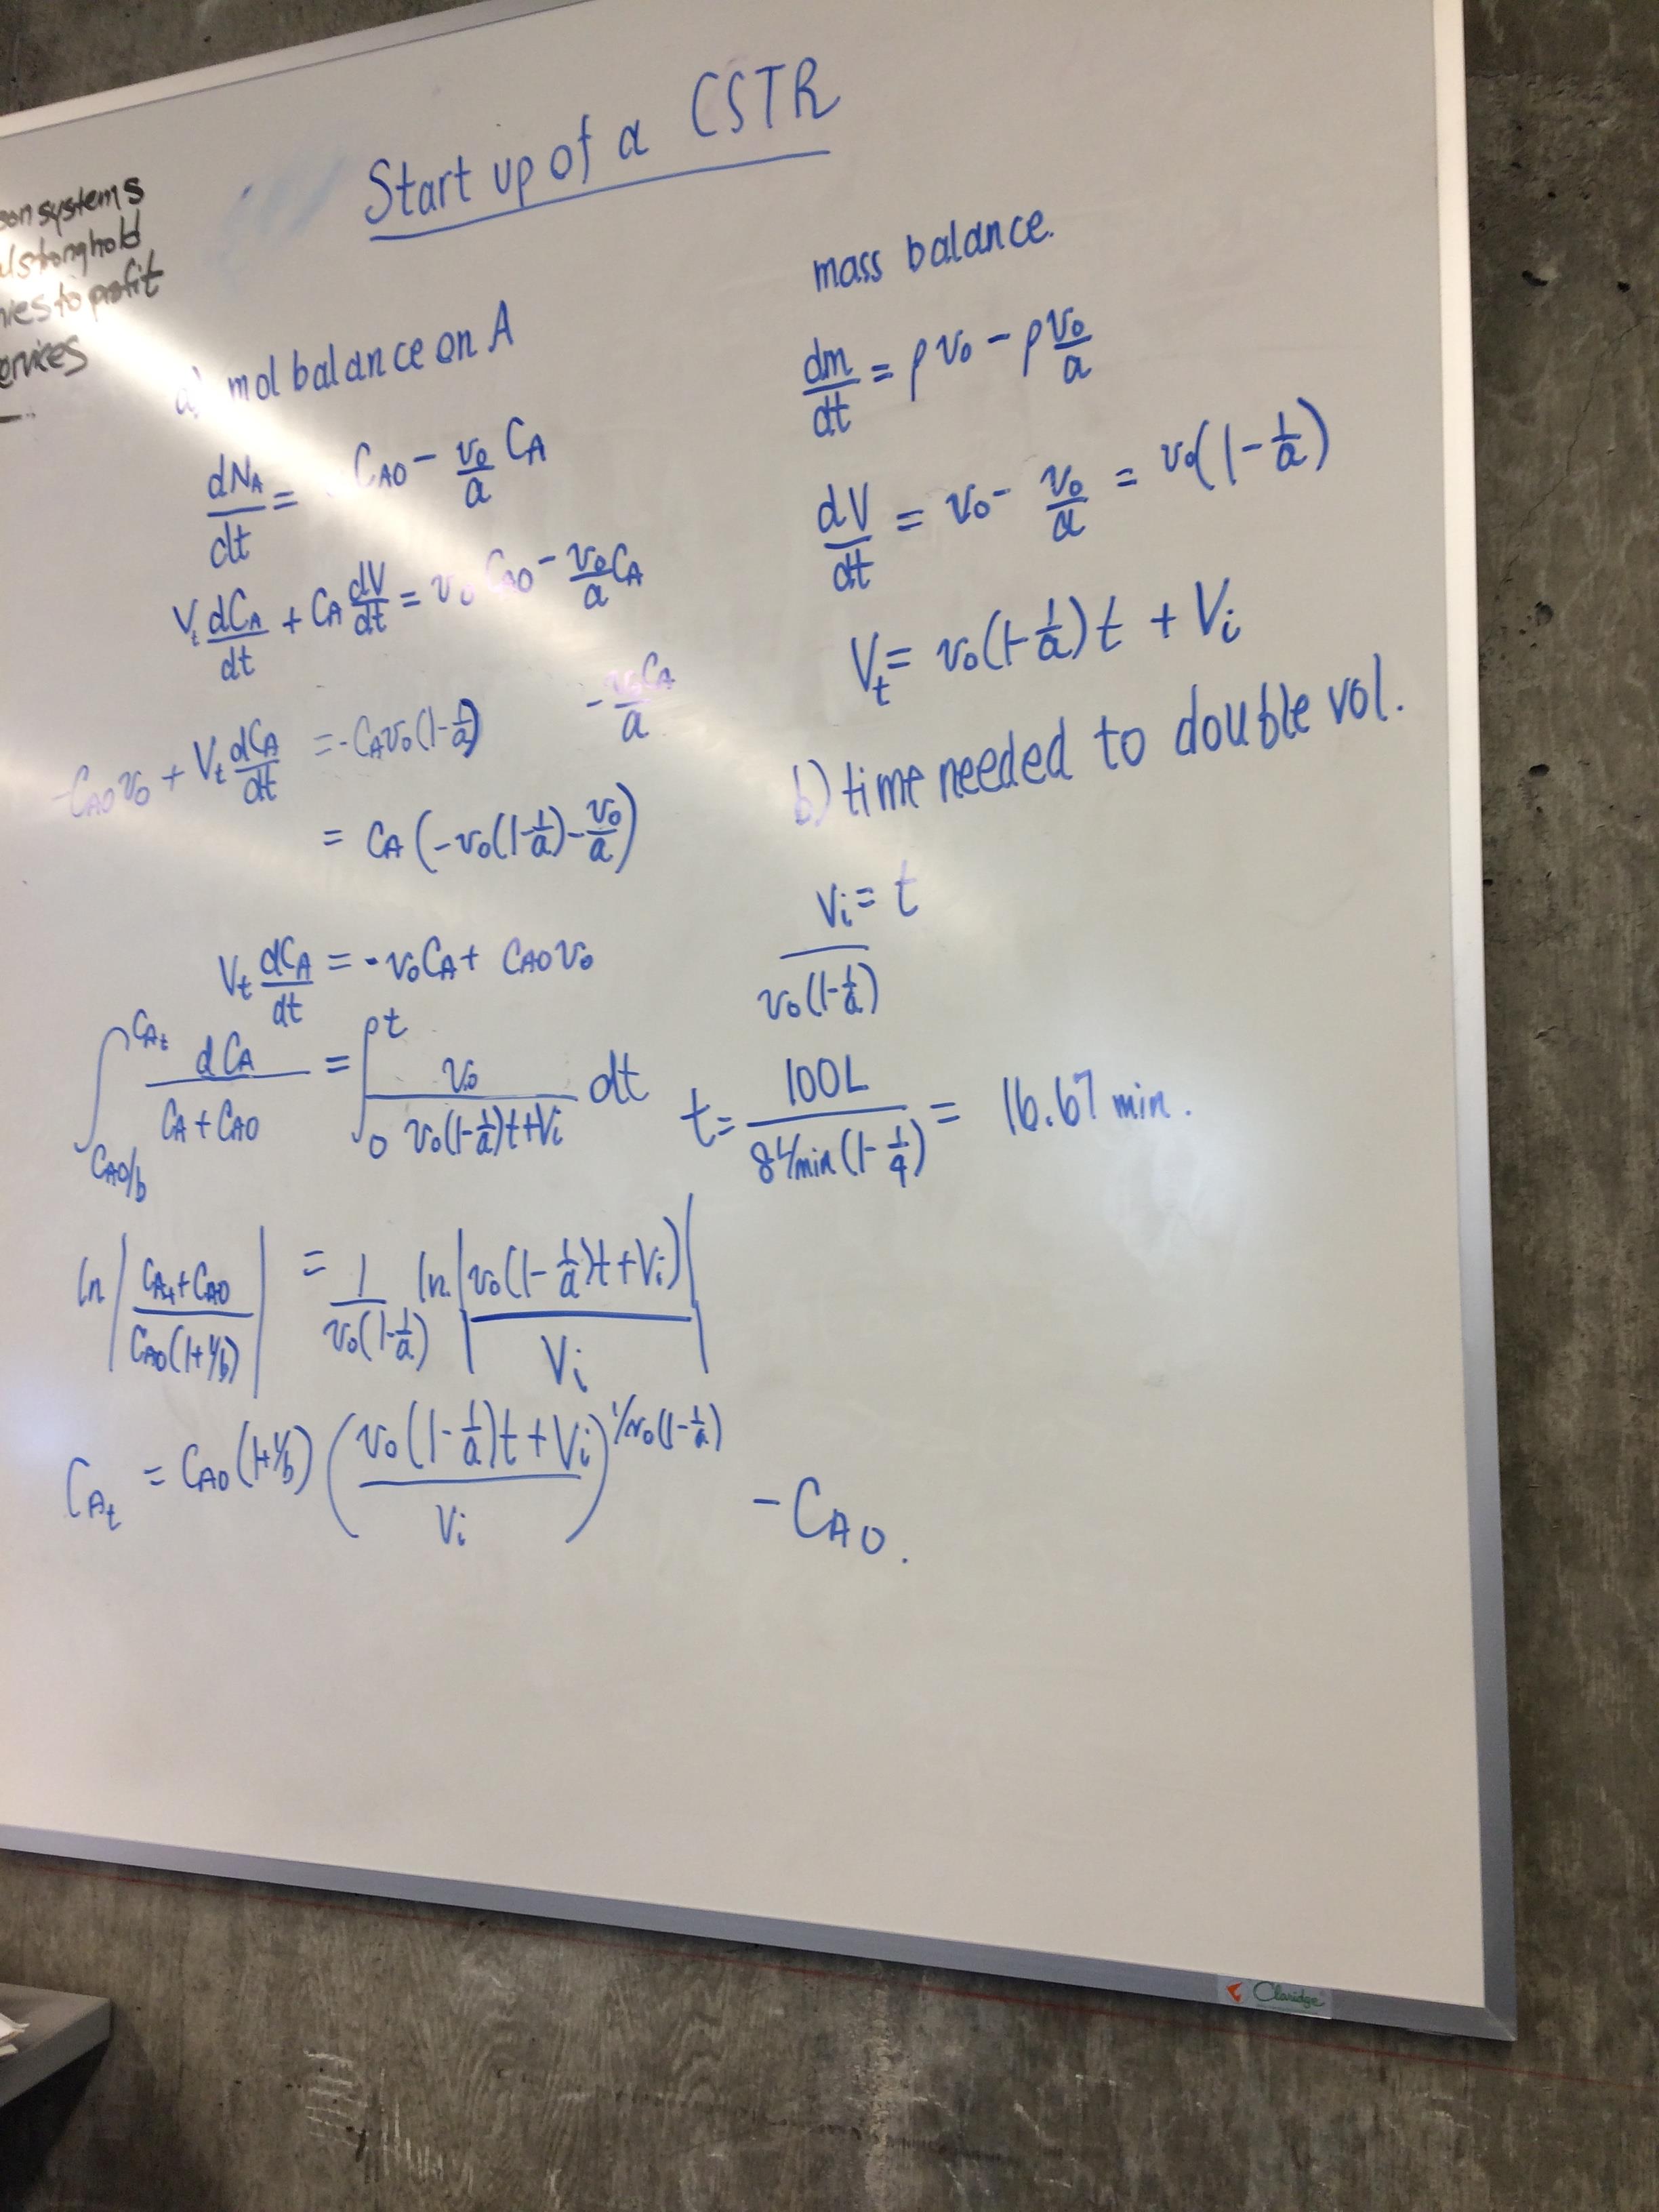 Start up of a CSTR
systems
stronghold
to profit
mol balance on A
dNA/dt = CA0 - v0/a CA
Vt dCA/dt + CA dV/dt = v0 CA0 - v0/a CA
-CA0 v0 + Vt dCA/dt = -CA v0(1-1/a) - v0CA/a
= CA (-v0(1-1/a) - v0/a)
Vt dCA/dt = -v0CA + CA0 v0
∫_{CA0/b}^{CAt} dCA/(CA + CA0) = ∫_0^t v0/(v0(1-1/a)t+Vi) dt
ln |(CAt+CA0)/(CA0(1+1/b))| = 1/(v0(1-1/a)) ln |(v0(1-1/a)t+Vi)/Vi|
CAt = CA0(1+1/b) ((v0(1-1/a)t+Vi)/Vi)^{1/v0(1-1/a)} - CA0.
mass balance.
dm/dt = ρv0 - ρ v0/a
dV/dt = v0 - v0/a = v0(1-1/a)
Vt = v0(1-1/a)t + Vi
b) time needed to double vol.
Vi/(v0(1-1/a)) = t
t = 100L/(8 L/min (1-1/4)) = 16.67 min.
Claridge